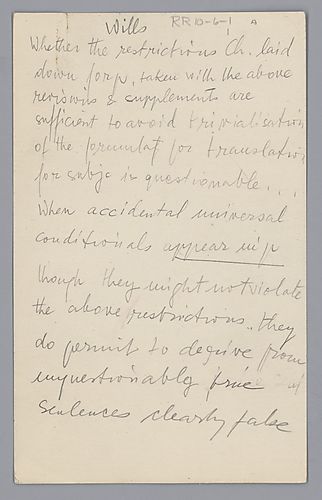 Wills RR 10-6-1 A
Whether the restrictions Ch. laid
down for p, taken with the above
reviewings & supplements are
sufficient to avoid trivialisation
of the formulat for translation
for subjc is questionable. . .
When accidental universal
conditionals appear in p
though they might not violate
the above restrictions.. they
do permit to derive from
unquestionably true
sentences clearly false